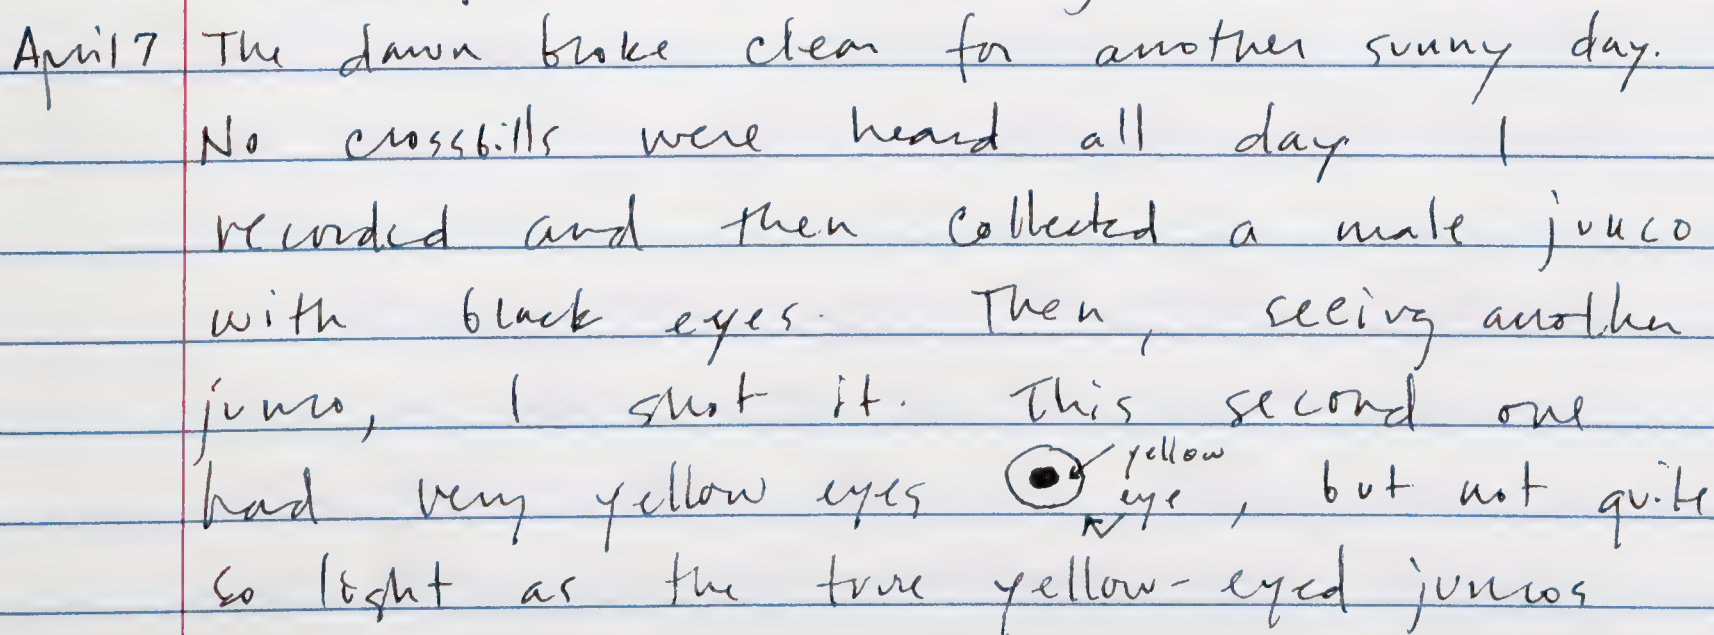 April 7 The dawn broke clear for another sunny day.
No crossbills were heard all day. I
recorded and then collected a male junco
with black eyes. Then, seeing another
junco, I shot it. This second one
had very yellow eyes yellow eye, but not quite
so light as the true yellow-eyed juncos